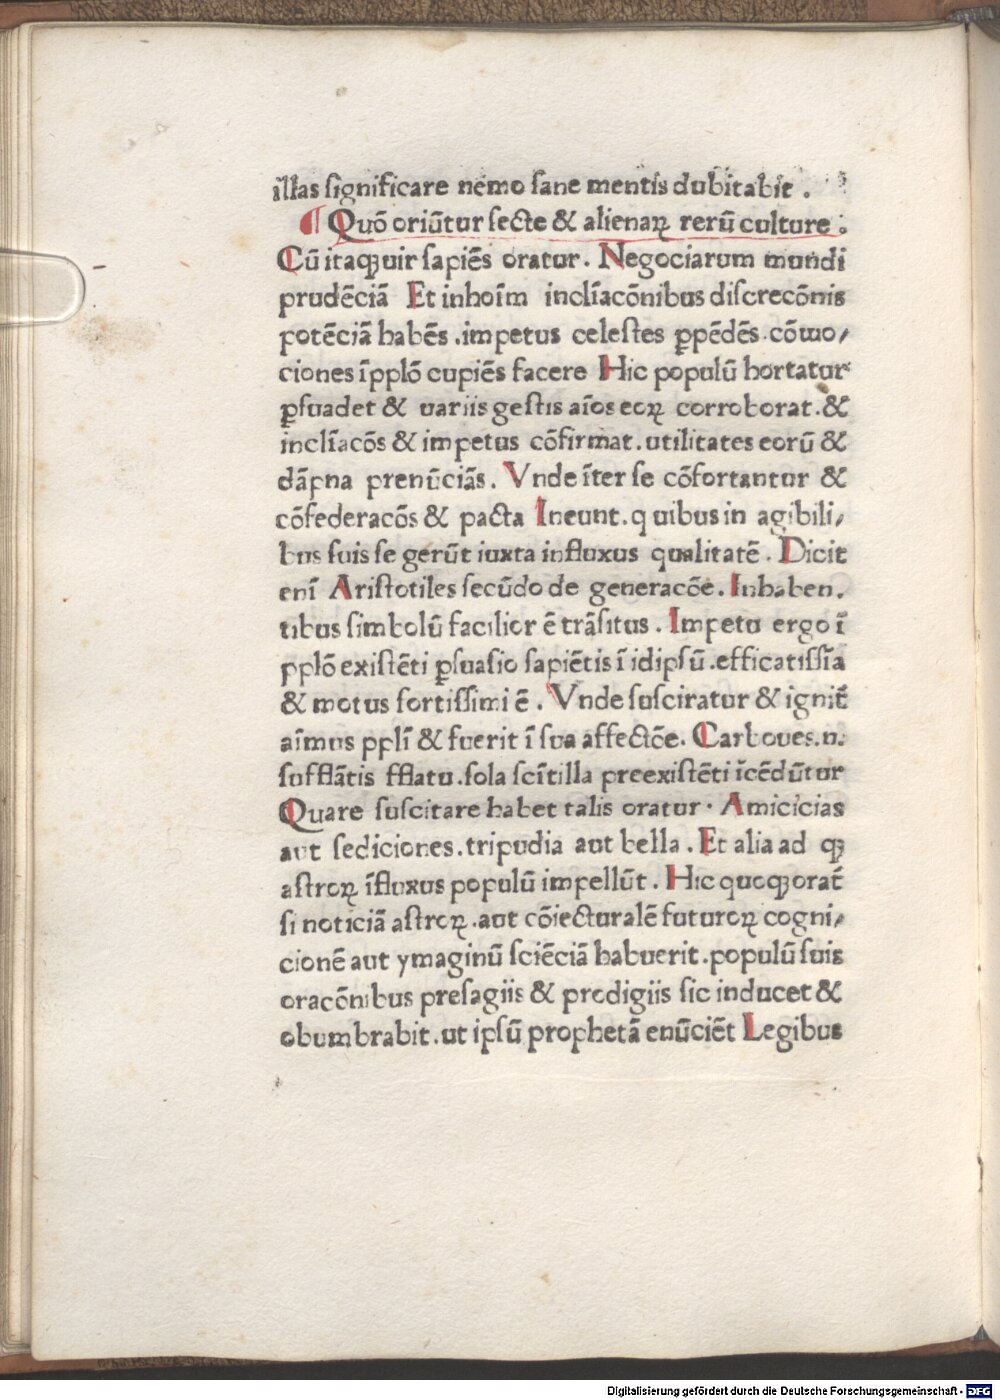 illas significare nemo sane mentis dubitabit .
¶ Quō oriūtur secte & alienaꝝ rerū culture :
Cū itaqꝫ uir sapiēs oratur . Negociarum mundi
prudēciā Et in hoīm inclīacōnibus discrecōnis
potēciā habēs . impetus celestes ꝑpēdēs . cōmo/
ciones ī pplō cupiēs facere Hic populū hortatur
ꝑsuadet & uariis gestis aīos eoꝝ corroborat . &
inclīacōs & impetus cōfirmat . utilitates eorū &
dāpna prenūciās . Vnde īter se cōfortantur &
cōfederacōs & pacta Ineunt . q uibus in agibili/
bus suis se gerūt iuxta influxus qualitatē . Dicit
enī Aristotiles secūdo de generacōe . In haben .
tibus simbolū facilior ē trāsitus . Impetu ergo ī
pplō existēti ꝑsuasio sapiētis ī idipsū . efficatissīa
& motus fortissimi ē . Vnde susciratur & ignit̄
aīmus pplī & fuerit ī sua affectōe . Carboues . n .
sufflātis fflatu . sola scītilla preexistēti īcēdūtur
Quare suscitare habet talis oratur . Amicicias
aut sediciones . tripudia aut bella . Et alia ad qꝫ
astroꝝ īfluxus populū impellūt . Hic quoqꝫ orat̄
si noticiā astroꝝ . aut cōiecturalē futuroꝝ cogni/
cionē aut ymaginū sciēciā habuerit . populū suis
oracōnibus presagiis & prodigiis sic inducet &
obumbrabit . ut ipsū prophetā enūciēt Legibus
Digitalisierung gefördert durch die Deutsche Forschungsgemeinschaft - DFG